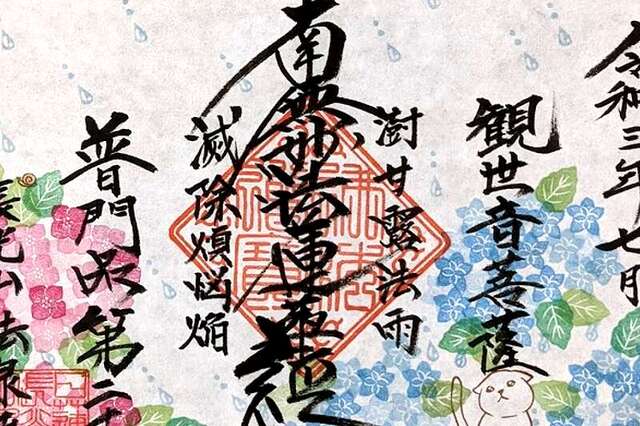 令和三年七月
観世音菩薩
澍甘露法雨
南無妙法蓮華経
滅除煩悩焔
普門品第二十